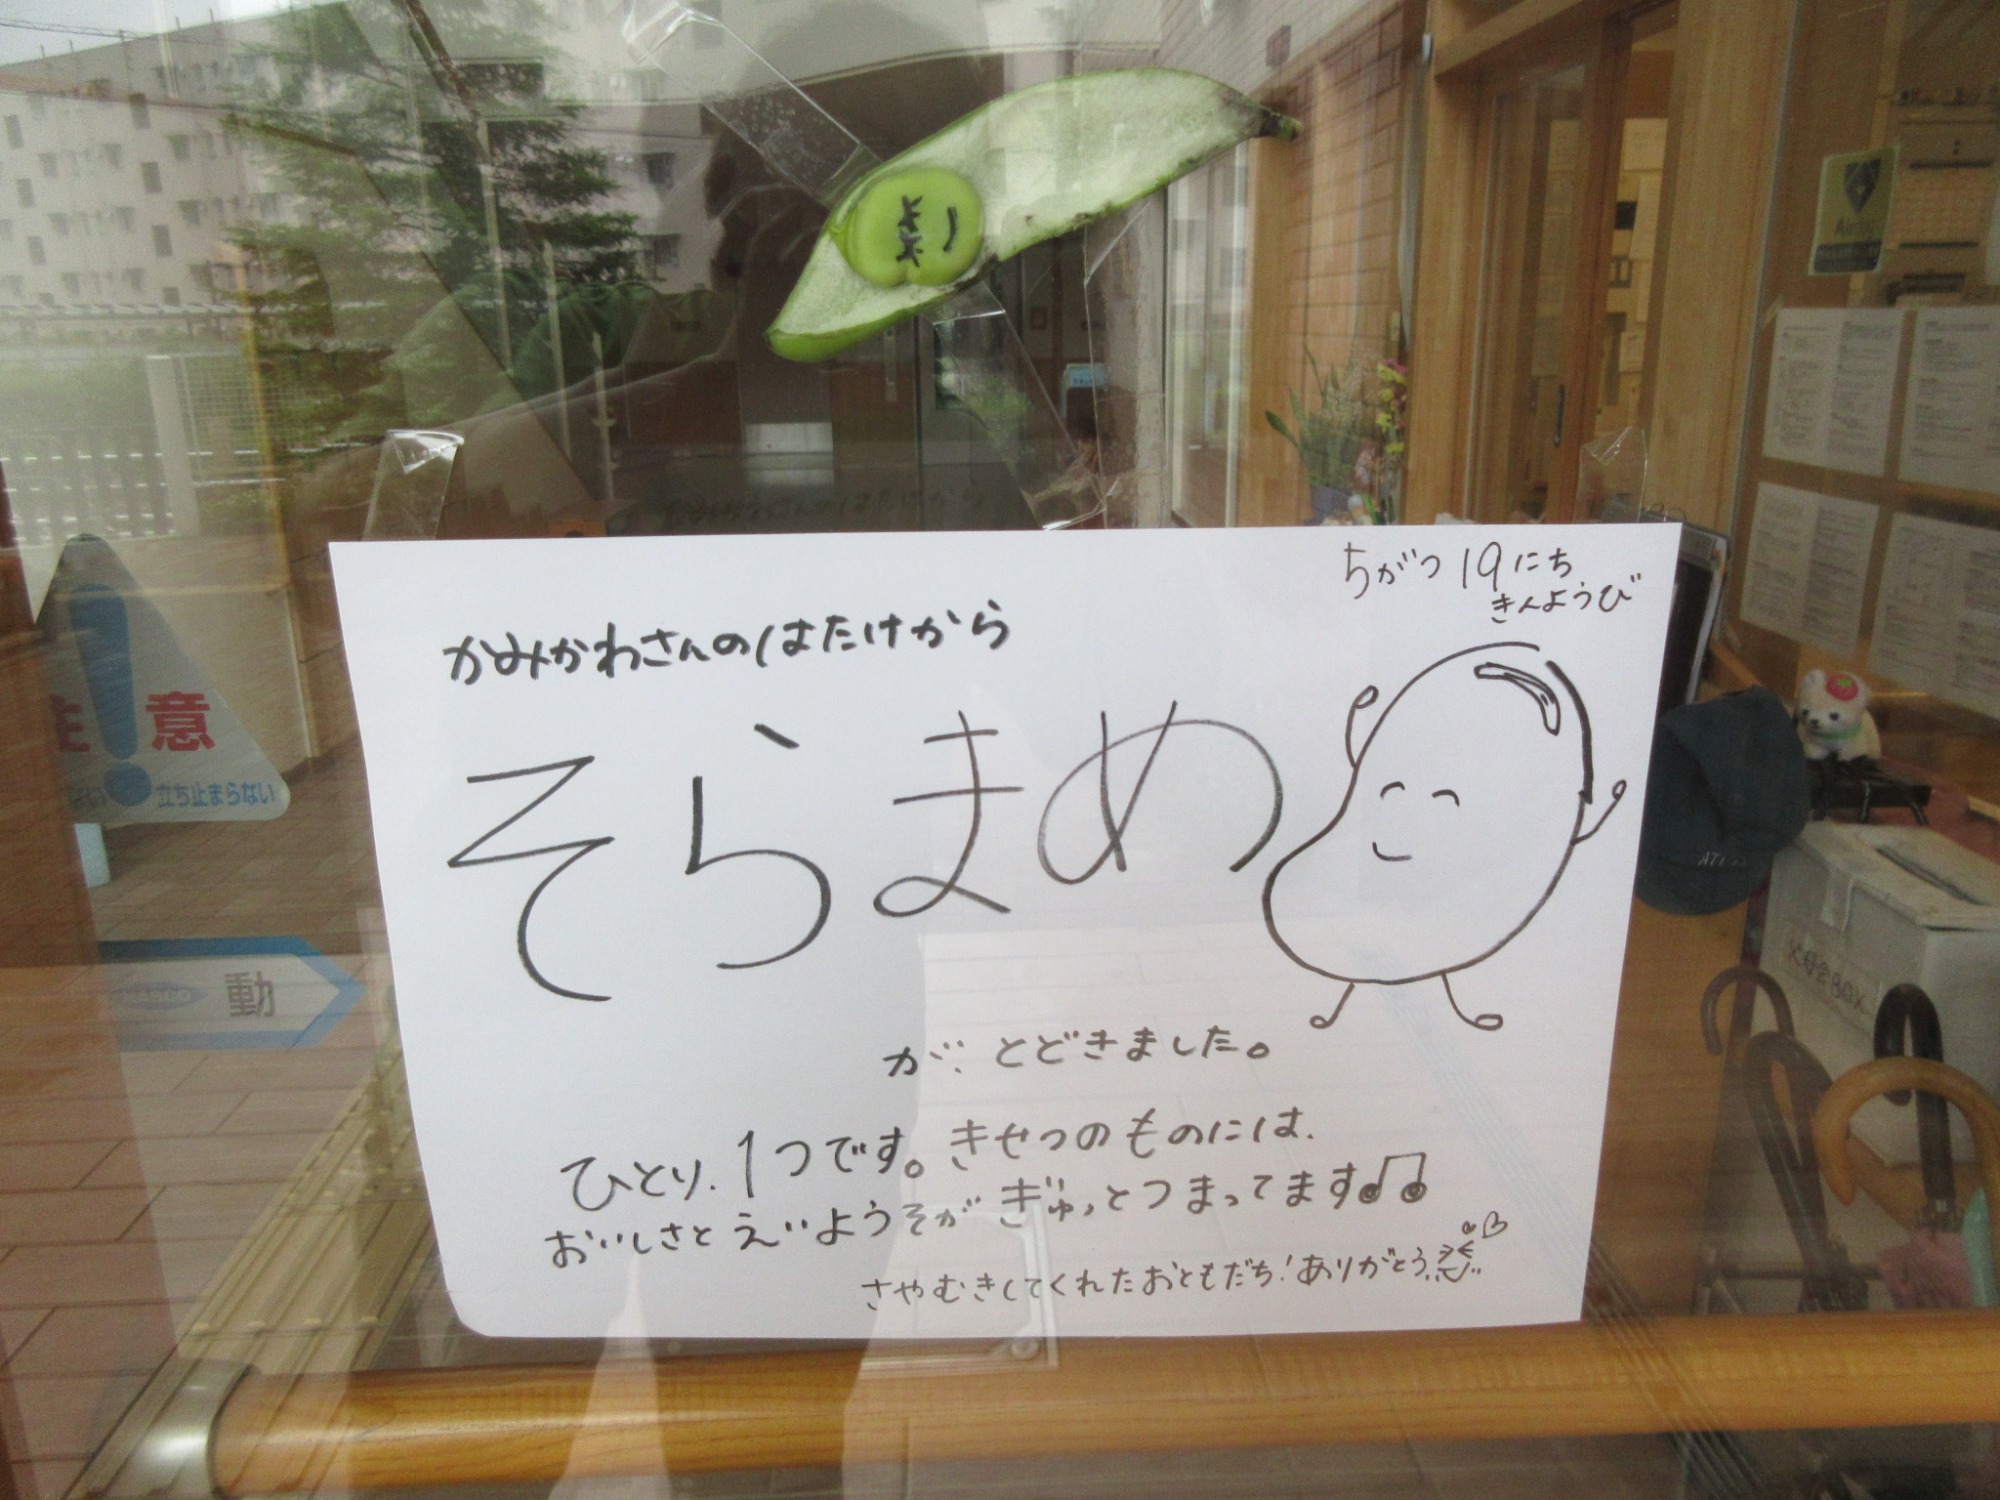 5がつ19にち
きんようび
かみかわさんのはたけから
そらまめ
が、とどきました。
ひとり、1つです。きせつのものには、
おいしさとえいようそがぎゅっとつまってます♫
さやむきしてくれたおともだち!ありがとう
注意
立ち止まらない
動
父母会BOX